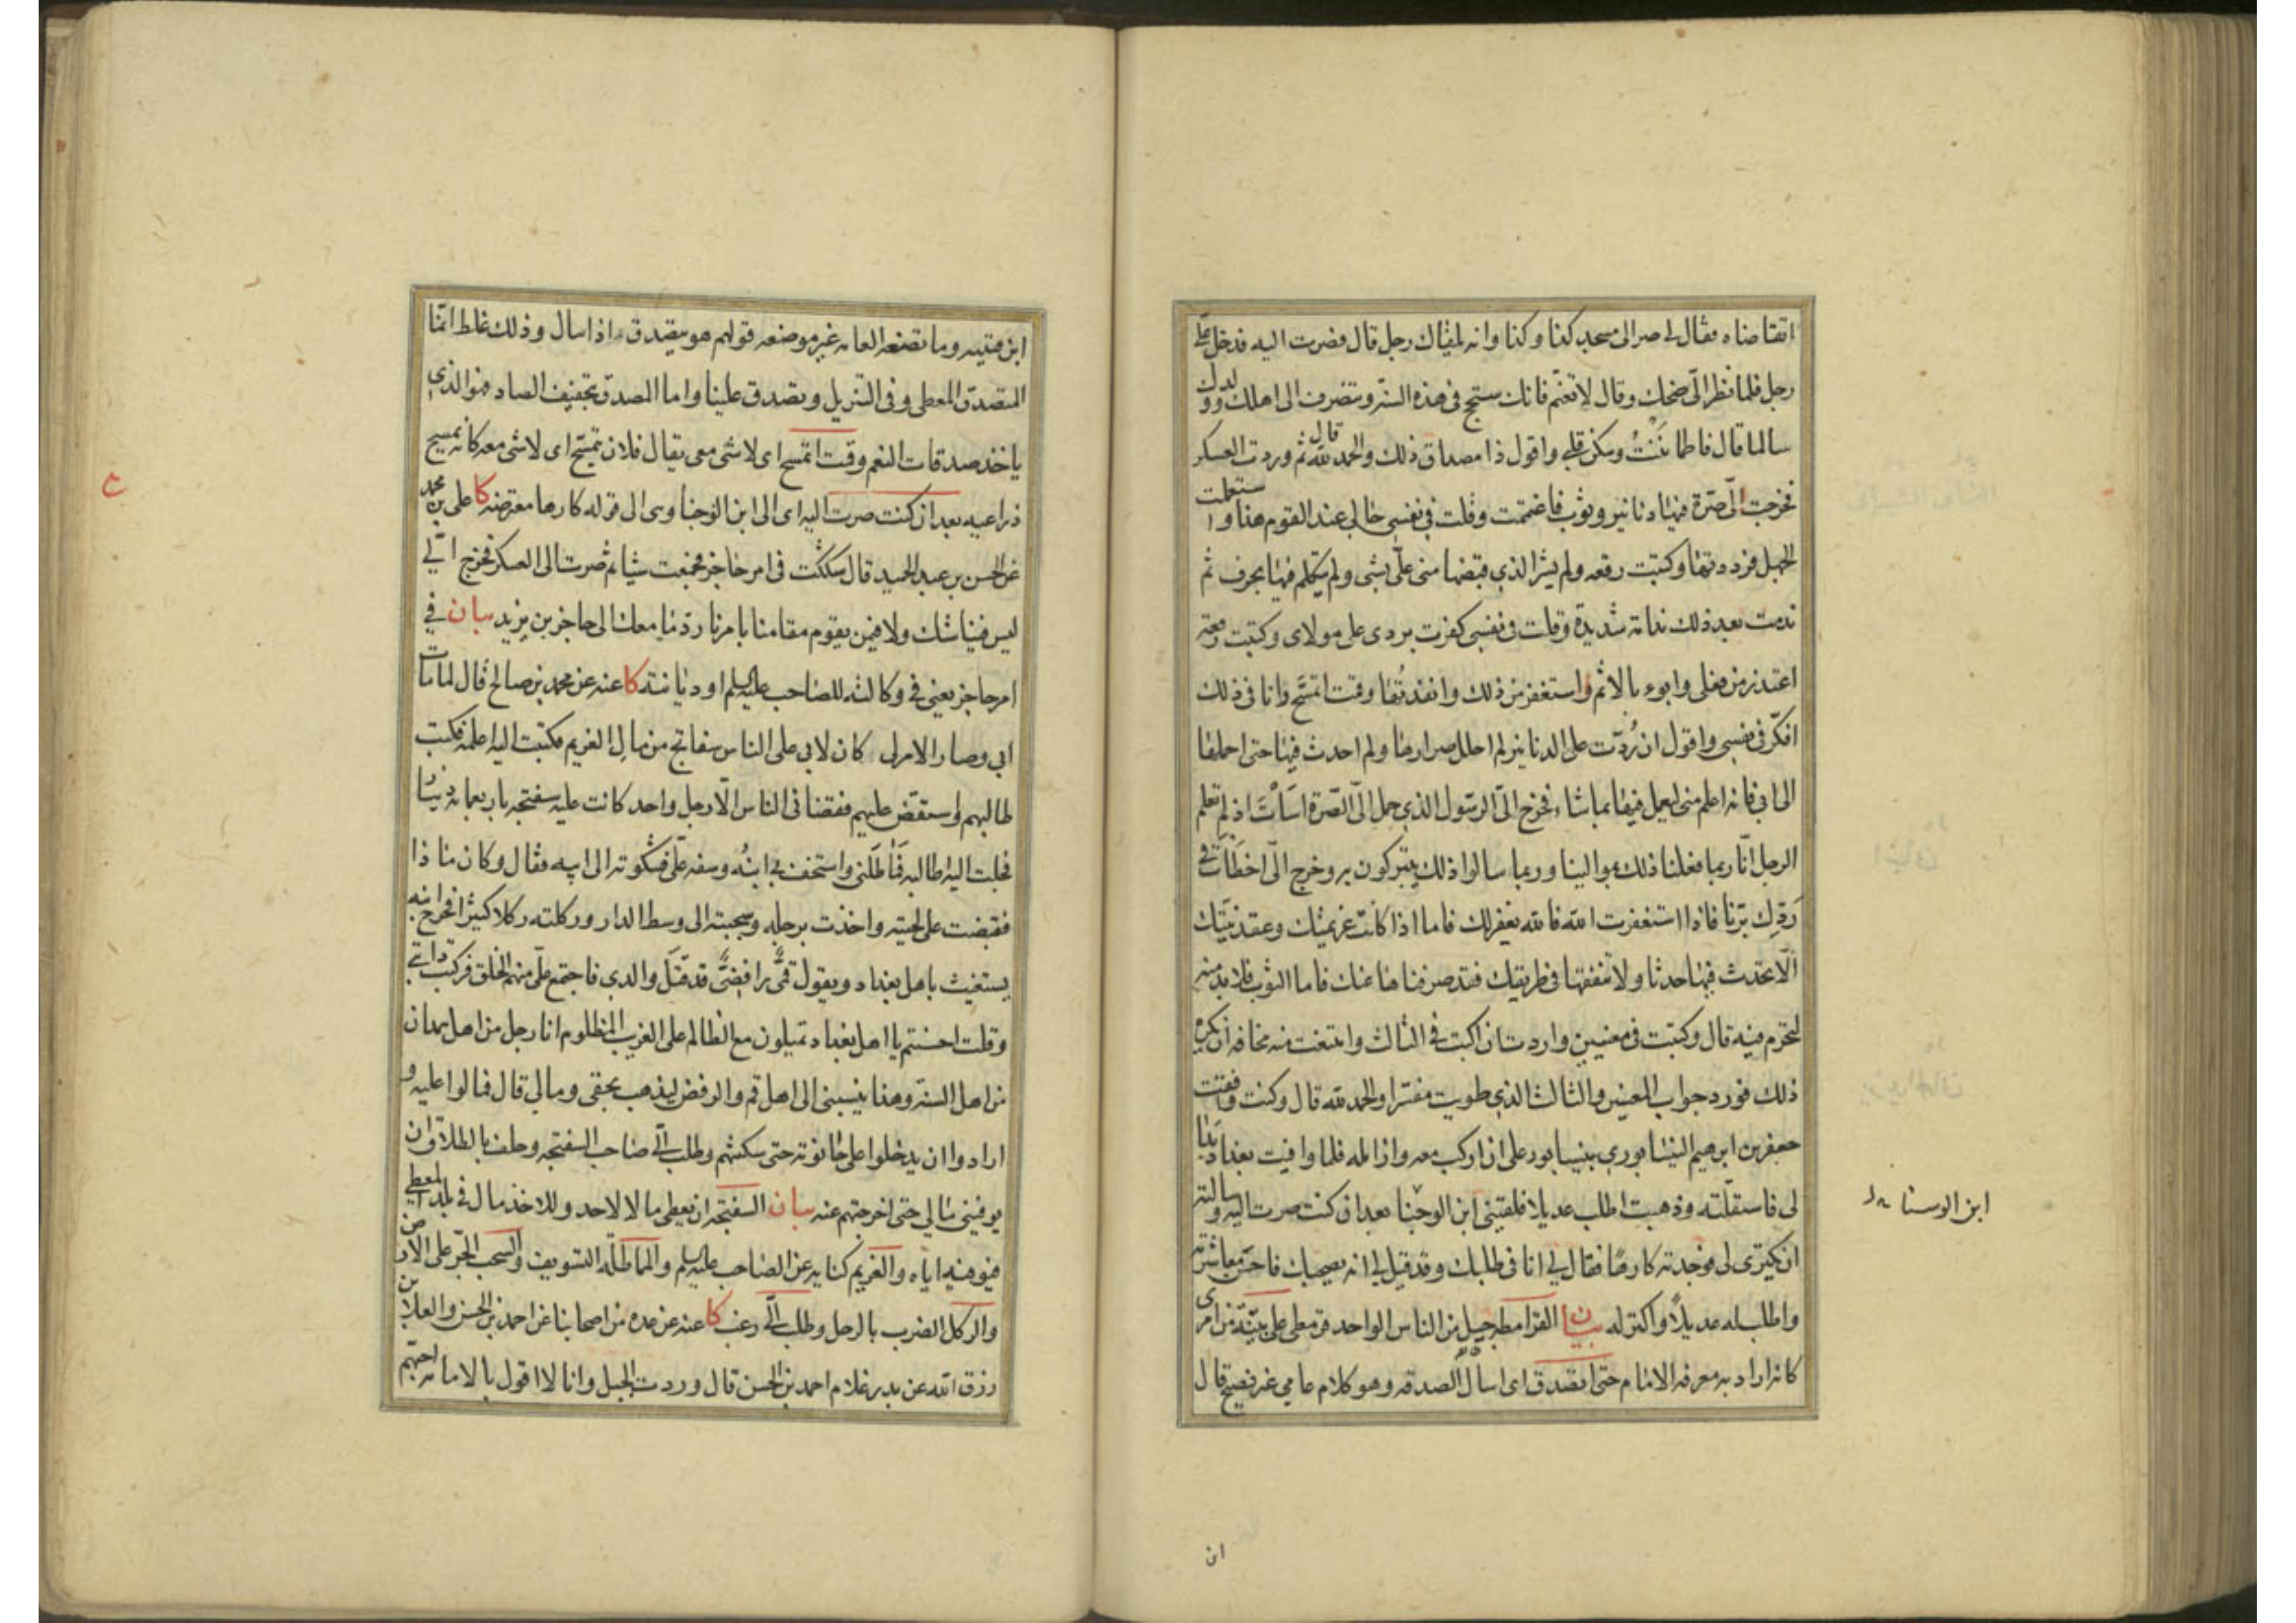 اتقاضاه فقال لي صر الى مسجد كذا وكذا وانه يلقاك رجل قال فصرت اليه فدخل علّي
رجل فلما نظر الىّ ضحك وقال لا تغتم فانك ستحج في هذه السنة وتنصرف الى اهلك وولدك
سالما قال فاطمأننت وسكن قلبي واقول ذا مصداق ذلك والحمد لله قال ثم وردت العسكر
فخرجت الىّ صرّة فيها دنانير وثوب فاغتممت وقلت في نفسي جزائي عند القوم هذا واستعملت
الجهل فرددتها وكتبت رقعه ولم يشر الذي قبضها مني علّى بشئ ولم يتكلم فيها بحرف ثم
ندمت بعد ذلك ندامة شديدة وقلت في نفسي كفرت بردى على مولاي وكتبت رقعة
اعتذر من فعلي وابوء بالاثم واستغفر من ذلك وانفذتُها وقمت اتمسّح وانا في ذلك
افكّر في نفسي واقول ان رُدّت على الدنانير لم احلل صرارها ولم احدث فيها حتى احملها
الى ابي فانه اعلم مني ليعمل فيها بما شاء فخرج الىّ الرسول الذي حمل الىّ الصّرة اسَأتَ اذ لم تعلم
الرجل انّا ربما فعلنا ذلك بموالينا وربما سالوا ذلك يتبركون به وخرج الىّ اخطَأتَ في
رَدِّك بّرنا فاذا استغفرت الله فالله يغفر لك فاما اذا كانت عزيمتك وعقد نيّتك
ألّا تحدث فيها حدثا ولا تنفقها في طريقك فقد صرفناها عنك فاما الثوب فلا بد منه
لتحرم فيه قال وكتبت في معنيين واردت ان اكتب في الثالث وامتنعت منه مخافة أن يكره
ذلك فورد جواب المعنيين والثالث الذي طويت مفسّرا والحمد لله قال وكنت وافقت
جعفر بن ابرهيم النيسابوري بنيسابور على ان اركب معه وازامله فلما وافيت بغداد بدا
لي فاستقلّته وذهبت اطلب عديلا فلقيني ابن الوجنا بعد ان كنت صرت اليه وسالته
ابن الوسنا
ان يكترى لى فوجدته كارها فقال لي انا في طلبك وقد قيل لي انه يصحبك فاحسن معاشرته
واطلب له عديلاً واكتر له بيان القرامطه جيل من الناس الواحد قرمطي على بيّنة من امرى
كانه اراد به معرفة الامام حتى اتصدق اى اسأل الصدقه وهو كلام عامي غير فصيح قال
ابن
ابن قتيبه وما تضعه العامه غير موضعه قولهم هو يتصدق اذا سال وذلك غلط انّما
المتصدق المعطى وفي التنزيل وتصدق علينا واما المصدق بتخفيف الصاد فهو الذي
ياخذ صدقات النعم وقمت اتمسح اى لا شئ معى يقال فلان يتمسّح اى لا شئ معه كانه يمسح
ذراعيه بعد ان كنت صرت اليه اى الى ابن الوجنا وهى الى قوله كارها معترضه كا على بن محمد
عن الحسن بن عبد الحميد قال شككت في امر حاجز فجمعت شيئا ثم صرت الى العسكر فخرج الىّ
ليس فينا شك ولا فيمن يقوم مقامنا بامرنا ردّ ما معك الى حاجز بن يزيد بيان في
امر حاجز يعني في وكالته للصاحب عليه السلم او ديانته كا عنه عن محمد بن صالح قال لما مات
ابي وصار الامر لي كان لابي على الناس سفاتج من مال الغريم فكتبت اليه اعلمه فكتب
طالبهم واستقض عليهم فقضا في الناس الّا رجل واحد كانت عليه سفتجه باربعمائة دينار
فجئت اليه اطالبه فماطلني واستخف بي ابنُه وسفه علّى فشكوته الى ابيه فقال وكان ماذا
فقبضت على لحيته واخذت برجله وسحبته الى وسط الدار وركلته ركلا كثيرا فخرج ابنه
يستغيث باهل بغداد ويقول قمىٌّ رافضىٌّ قد قتَل والدي فاجتمع علّى منهم الخلق فركبت دابتي
وقلت احسنتم يا اهل بغداد تميلون مع الظالم على الغريب المظلوم انا رجل من اهل همدان
من اهل السنة وهذا ينسبني الى اهل قم والرفض ليذهب بحقي ومالي قال فمالوا عليه و
ارادوا ان يدخلوا على حانوته حتى سكنتهم وطلب الىّ صاحب السفتجه وحلف بالطلاق ان
يوفيني مالي حتى اخرجتهم عنه بيان السفتجه ان يعطى مالا لاحد وللاخذ مال في بلد المعطي
فيوفيه اياه والغريم كناية عن الصاحب عليه السلم والمماطلة التسويف والسحب الجّر على الارض
والركل الضرب بالرجل وطلب الىّ رغب كا عنه عن عده من اصحابنا عن احمد بن الحسن والعلا بن
رزق الله عن بدر غلام احمد بن الحسن قال وردت الجبل وانا لا اقول بالامامة احبّهم